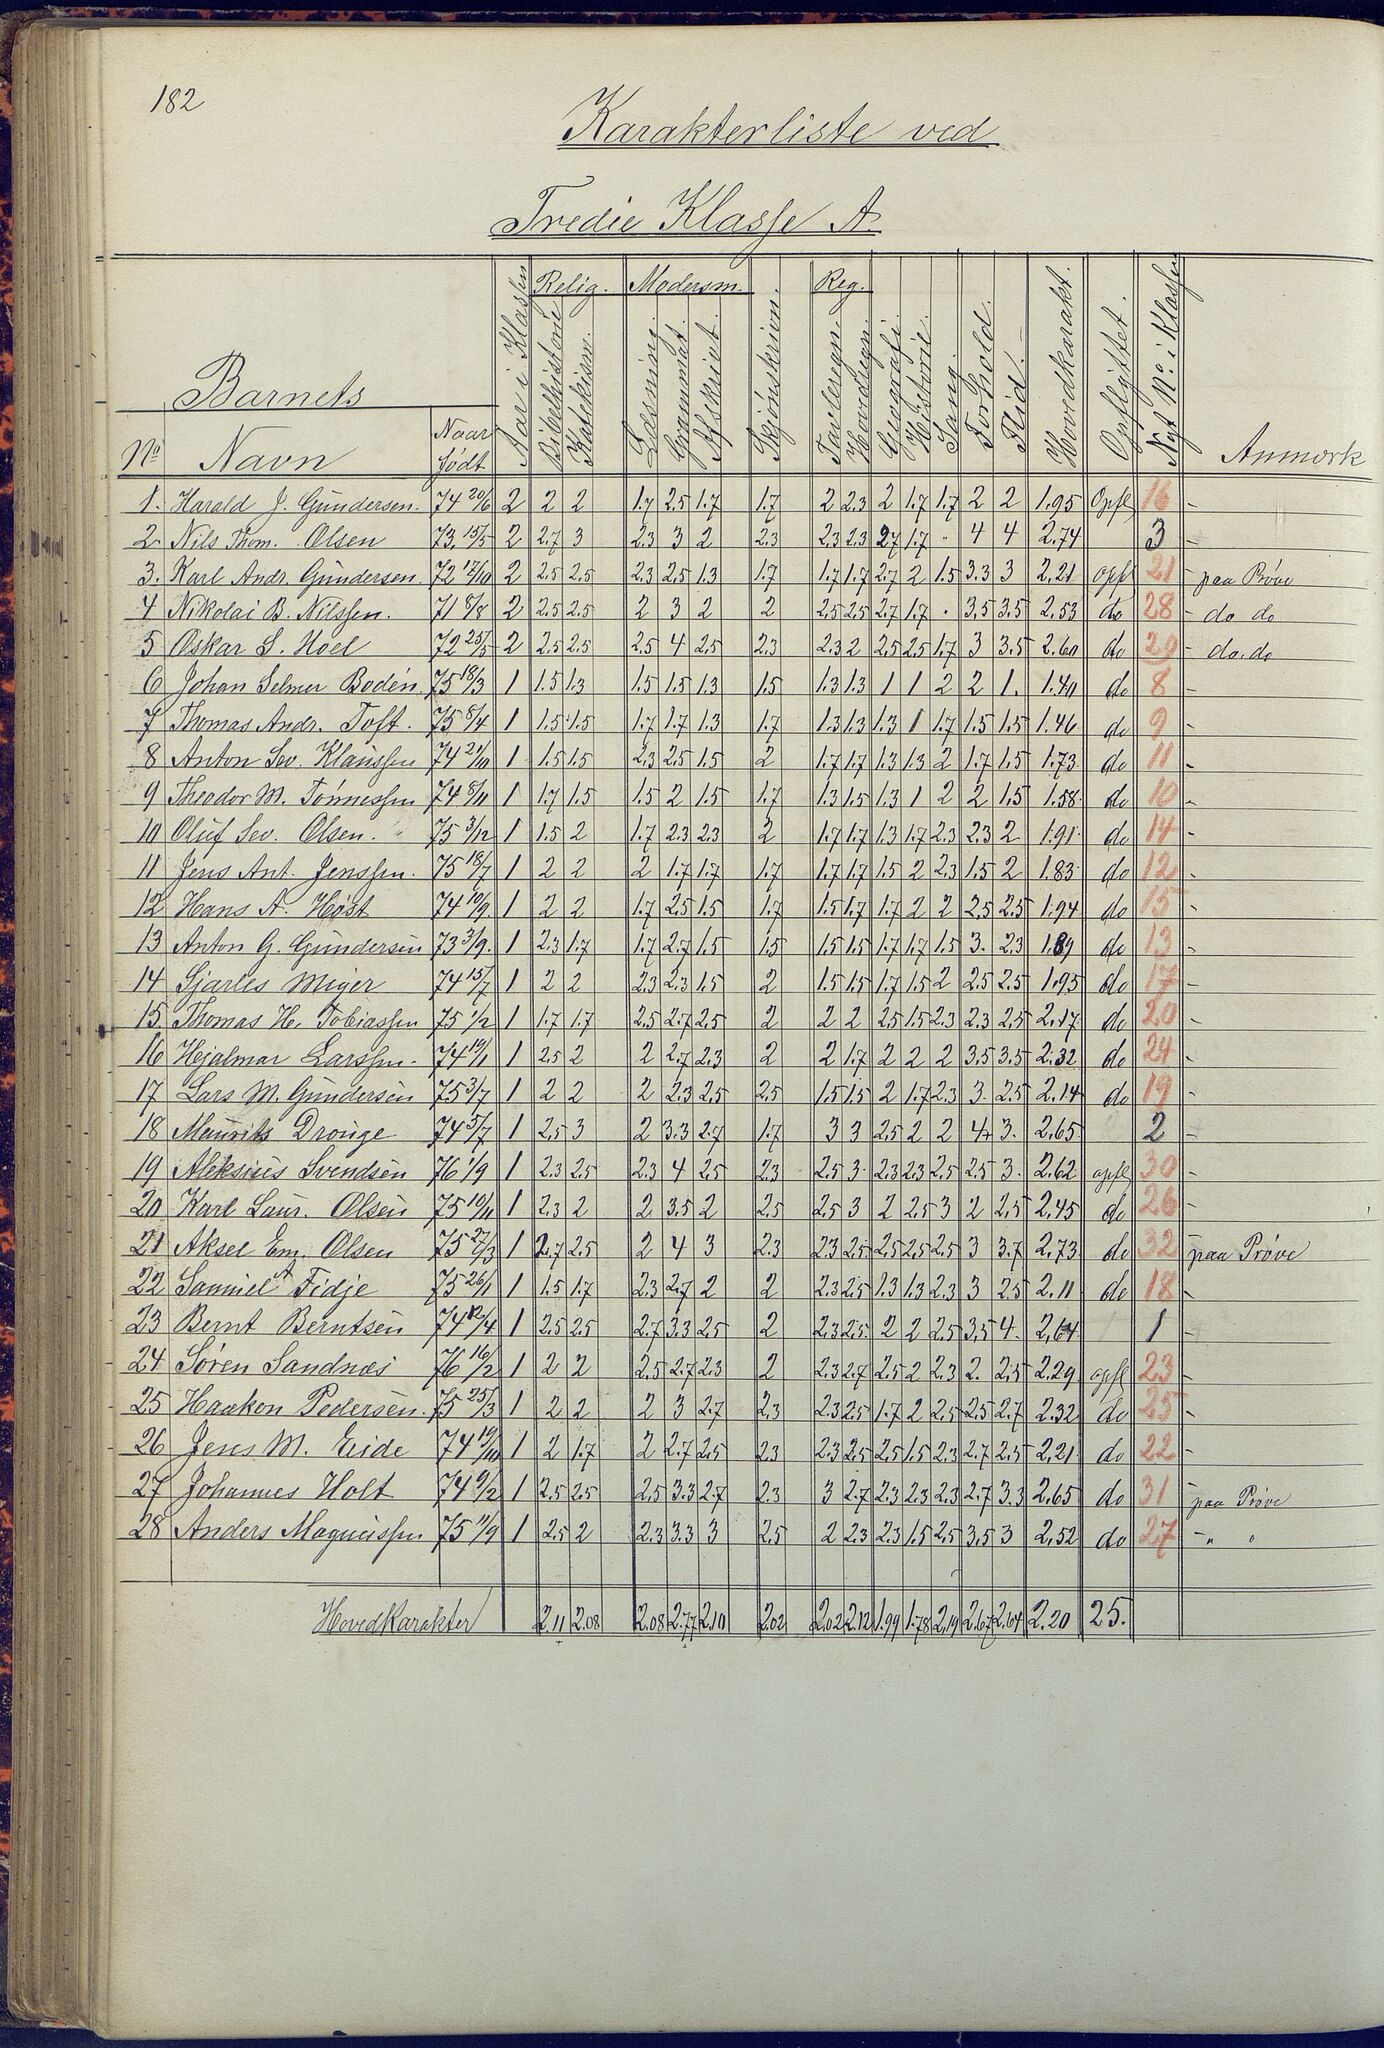 182
Karakterliste ved
Tredie Klasse A.
Barnets
No Navn Naar født Aar i Klassen Relig. Bibelhistorie Katekism. Modersm. Læsning. Grammat. Afskrivt. Skjönskrivn. Reg. Tavleregn. Hovedregn. Geografi. Historie. Sang. Forhold. Flid. Hovedkarakt. Opflyttet. Nyt No i Klassen Anmærk
1. Harald J. Gundersen. 74 20/6 2 2 2 1.7 2.5 1.7 1.7 2 2.3 2 1.7 1.7 2 2 1.95 Opfl 16 -
2 Nils Thom. Olsen 73. 15/5 2 2.7 3 2.3 3 2 2.3 2.3 2.3 2.7 1.7 - 4 4 2.74 3 -
3. Karl Andr. Gundersen. 72 17/10 2 2.5 2.5 2.3 2.5 1.3 1.7 1.7 1.7 2.7 2 1.5 3.3 3 2.21 opfl 21 - paa Prøve
4 Nikolai B. Nilssen. 71 8/8 2 2.5 2.5 2 3 2 2 2.5 2.5 2.7 1.7 - 3.5 3.5 2.53 do 28 - do do
5 Oskar S. Hoel 72 25/5 2 2.5 2.5 2.5 4 2.5 2.3 2.3 2 2.5 2.5 1.7 3 3.5 2.60 do 29 - do. do
6 Johan Selmer Bodén. 75 18/3 1 1.5 1.3 1.5 1.5 1.3 1.5 1.3 1.3 1 1 2 2 1. 1.40 do 8 -
7 Thomas Andr. Toft. 75 8/4 1 1.5 1.5 1.7 1.7 1.3 1.7 1.3 1.3 1.3 1 1.7 1.5 1.5 1.46 do 9 -
8 Anton Sev. Klaussen 74 21/10 1 1.5 1.5 2.3 2.5 1.5 2 1.7 1.7 1.3 1.3 2 1.7 1.5 1.73. do 11 -
9 Theodor M. Tönnessen 74 8/11 1 1.7 1.5 1.5 2 1.5 1.7 1.3 1.5 1.3 1 2 2 1.5 1.58. do 10 -
10 Oluf Sev. Olsen. 75 3/12 1 1.5 2 1.7 2.3 2.3 2 1.7 1.7 1.3 1.7 2.3 2.3 2 1.91 do 14 -
11 Jens Ant. Jenssen. 75 18/7 1 2 2 2 1.7 1.7 1.7 1.7 1.7 1.5 2 2.3 1.5 2 1.83. do 12 -
12 Hans A. Høst 74 10/9 1 2 2 1.7 2.5 1.5 1.7 1.5 1.7 1.7 2 2 2.5 2.5 1.94 do 15 -
13 Anton G. Gundersen 73 3/9. 1 2.3 1.7 1.7 2.7 1.5 1.5 1.5 1.5 1.7 1.7 1.5 3. 2.3 1.89 do 13 -
14 Sjarles Meyer 74 15/7 1 2 2 2.3 2.3 1.5 2 1.5 1.5 1.7 1.5 2 2.5 2.5 1.95 do 17 -
15 Thomas H. Tobiassen 75 1/2 1 1.7 1.7 2.5 2.7 2.5 2 2 2 2.5 1.5 2.3 2.3 2.5 2.17. do 20 -
16 Hjalmar Larssen. 74 19/1 1 2.5 2 2 2.7 2.3 2 2 1.7 2 2 2 3.5 3.5 2.32 do 24 -
17 Lars M. Gundersen 75 3/7 1 2 2 2 2.3 2.5 2.5 1.5 1.5 2 1.7 2.3 3. 2.5 2.14 do 19 -
18 Maurits Drouge 74 5/7 1 2.5 3 2 3.3 2.7 1.7 3 3 2.5 2 2 4 3. 2.65 2 -
19 Aleksius Svendsen 76 1/9 1 2.3 2.5 2.3 4 2.5 2.3 2.5 3. 2.3 2.3 2.5 2.5 3. 2.62 opfl 30 -
20 Karl Laur. Olsen 75 10/11 1 2.3 2 2 3.5 2 2.5 2.5 3 2 2.5 3 2 2.5 2.45 do 26 -
21 Aksel Em. Olsen 75 27/3 1 2.7 2.5 2 4 3 2.3 2.3 2.5 2.5 2.5 2.5 3 3.7 2.73 do 32 paa Prøve
22 Samuel A Fidje 75 26/1 1 1.5 1.7 2.3 2.7 2 2 2.3 2.5 1.3 1.3 2.3 3 2.5 2.11 do 18 -
23 Bernt Berntsen 74 12/4 1 2.5 2.5 2.7 3.3 2.5 2 2.3 2.5 2 2 2.5 3.5 4. 2.64 1 -
24 Søren Sandnes 76 16/2 1 2 2 2.5 2.7 2.3 2 2.3 2.7 2.5 2 2.3 2. 2.5 2.29 opfl 23 -
25 Haakon Pedersen. 75 25/3 1 2 2 2 3 2.7 2.3 2.3 2.5 1.7 2 2.5 2.5 2.7 2.32 do 25 -
26 Jens M. Eide 74 19/10 1 2 1.7 2 2.7 2.5 2.3 2.3 2.5 2.5 1.5 2.3 2.7 2.5 2.21 do 22 -
27 Johannes Holt 74 9/2 1 2.5 2.5 2.5 3.3 2.7 2.3 3 2.7 2.3 2.3 2.3 2.7 3.3 2.65 do 31 paa Prøve
28 Anders Magnussen 75 11/9 1 2.5 2 2.3 3.3 3 2.5 2 2.3 2.3 1.5 2.5 3.5 3 2.52 do 27 - " "
Hovedkarakter 2.11 2.08 2.08 2.77 2.10 2.02 2.02 2.12 1.99 1.78 2.19 2.67 2.64 2.20 25.